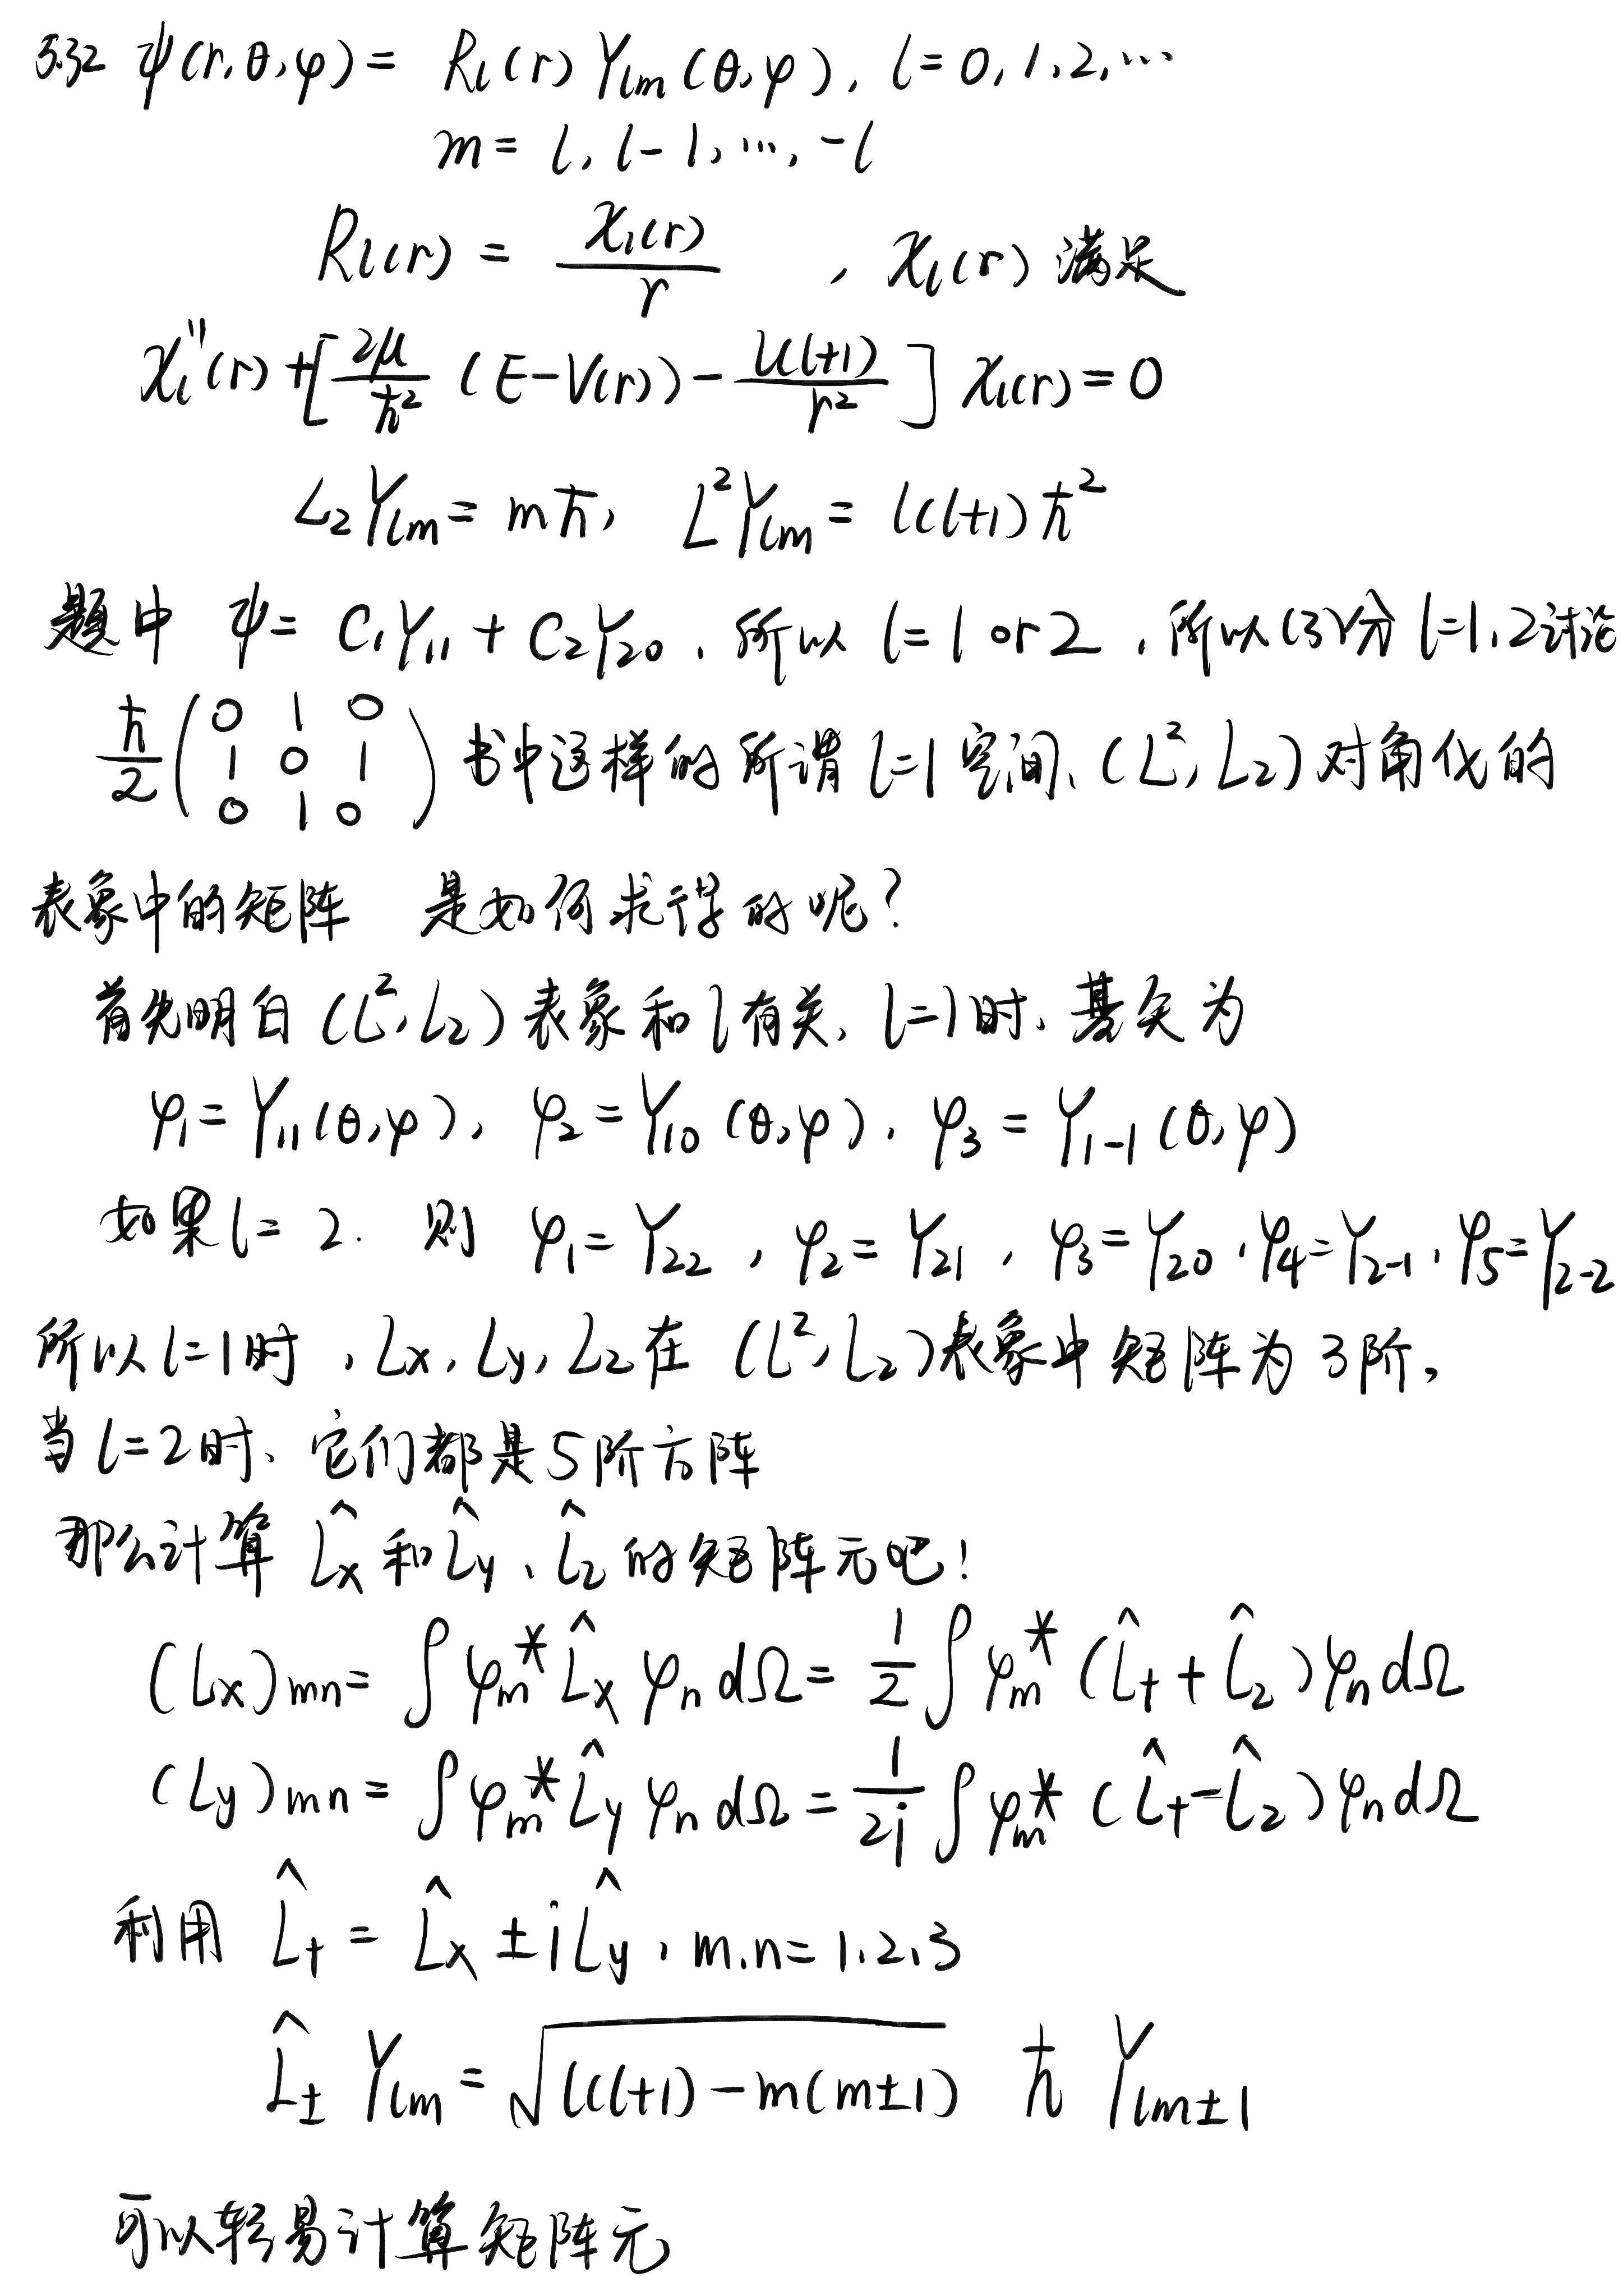 5.32 ψ(r,θ,φ) = R_l(r) Y_lm(θ,φ), l=0,1,2,…
m = l, l-1, …, -l
R_l(r) = χ_l(r)/r , χ_l(r) 满足
χ_l''(r) + [2μ/ħ² (E-V(r)) - l(l+1)/r²] χ_l(r) = 0
L_z Y_lm = mħ, L² Y_lm = l(l+1)ħ²
题中 ψ = C₁Y₁₁ + C₂Y₂₀, 所以 l=1 or 2, 所以(3)分 l=1,2讨论
ħ/2 (0 1 0; 1 0 1; 0 1 0) 书中这样的所谓 l=1空间、(L², L_z) 对角化的
表象中的矩阵 是如何求得的呢?
首先明白 (L², L_z) 表象和 l 有关, l=1时、基矢为
φ₁=Y₁₁(θ,φ), φ₂=Y₁₀(θ,φ), φ₃=Y₁₋₁(θ,φ)
如果 l=2. 则 φ₁=Y₂₂, φ₂=Y₂₁, φ₃=Y₂₀, φ₄=Y₂₋₁, φ₅=Y₂₋₂
所以 l=1时, Lx, Ly, Lz在 (L², L_z) 表象中矩阵为 3阶,
当 l=2时、它们都是5阶方阵
那么计算 L̂x 和 L̂y、L̂z 的矩阵元吧!
(Lx)mn = ∫φm* L̂x φn dΩ = 1/2 ∫φm* (L̂₊ + L̂₂) φn dΩ
(Ly)mn = ∫φm* L̂y φn dΩ = 1/2i ∫φm* (L̂₊ - L̂₂) φn dΩ
利用 L̂₊ = L̂x ± iL̂y, m,n=1,2,3
L̂± Y_lm = √(l(l+1) - m(m±1)) ħ Y_lm±1
可以轻易计算矩阵元